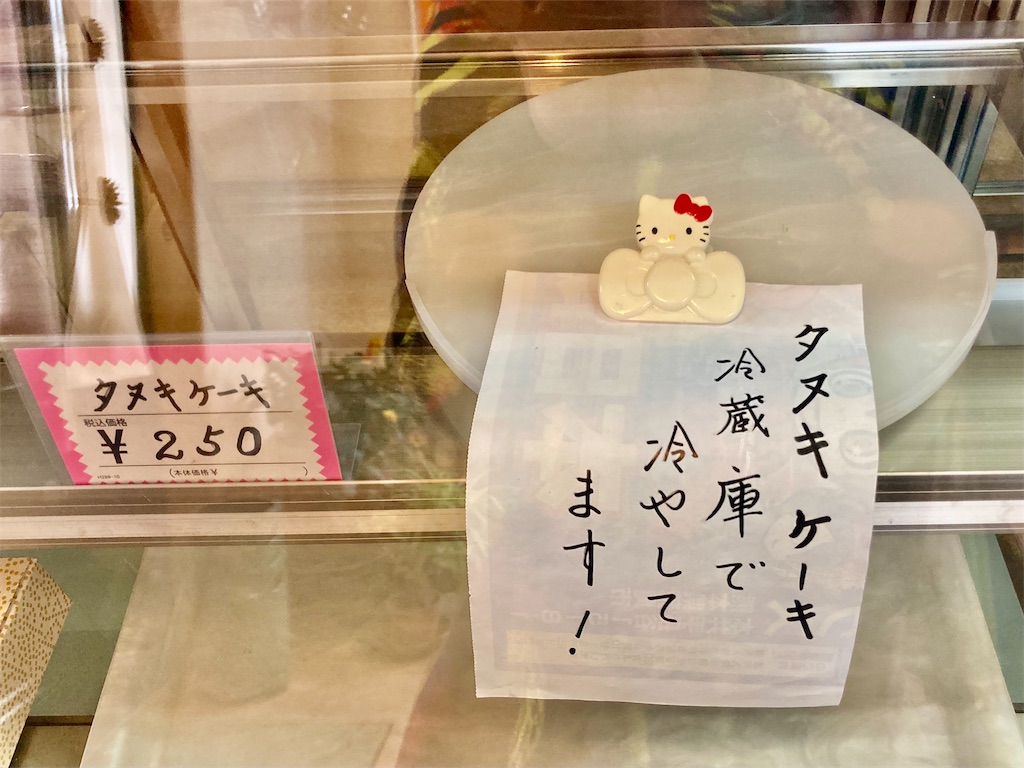 タヌキケーキ
税込価格
¥ 250
(本体価格 ¥ )
タヌキケーキ
冷蔵庫で
冷やして
ます!